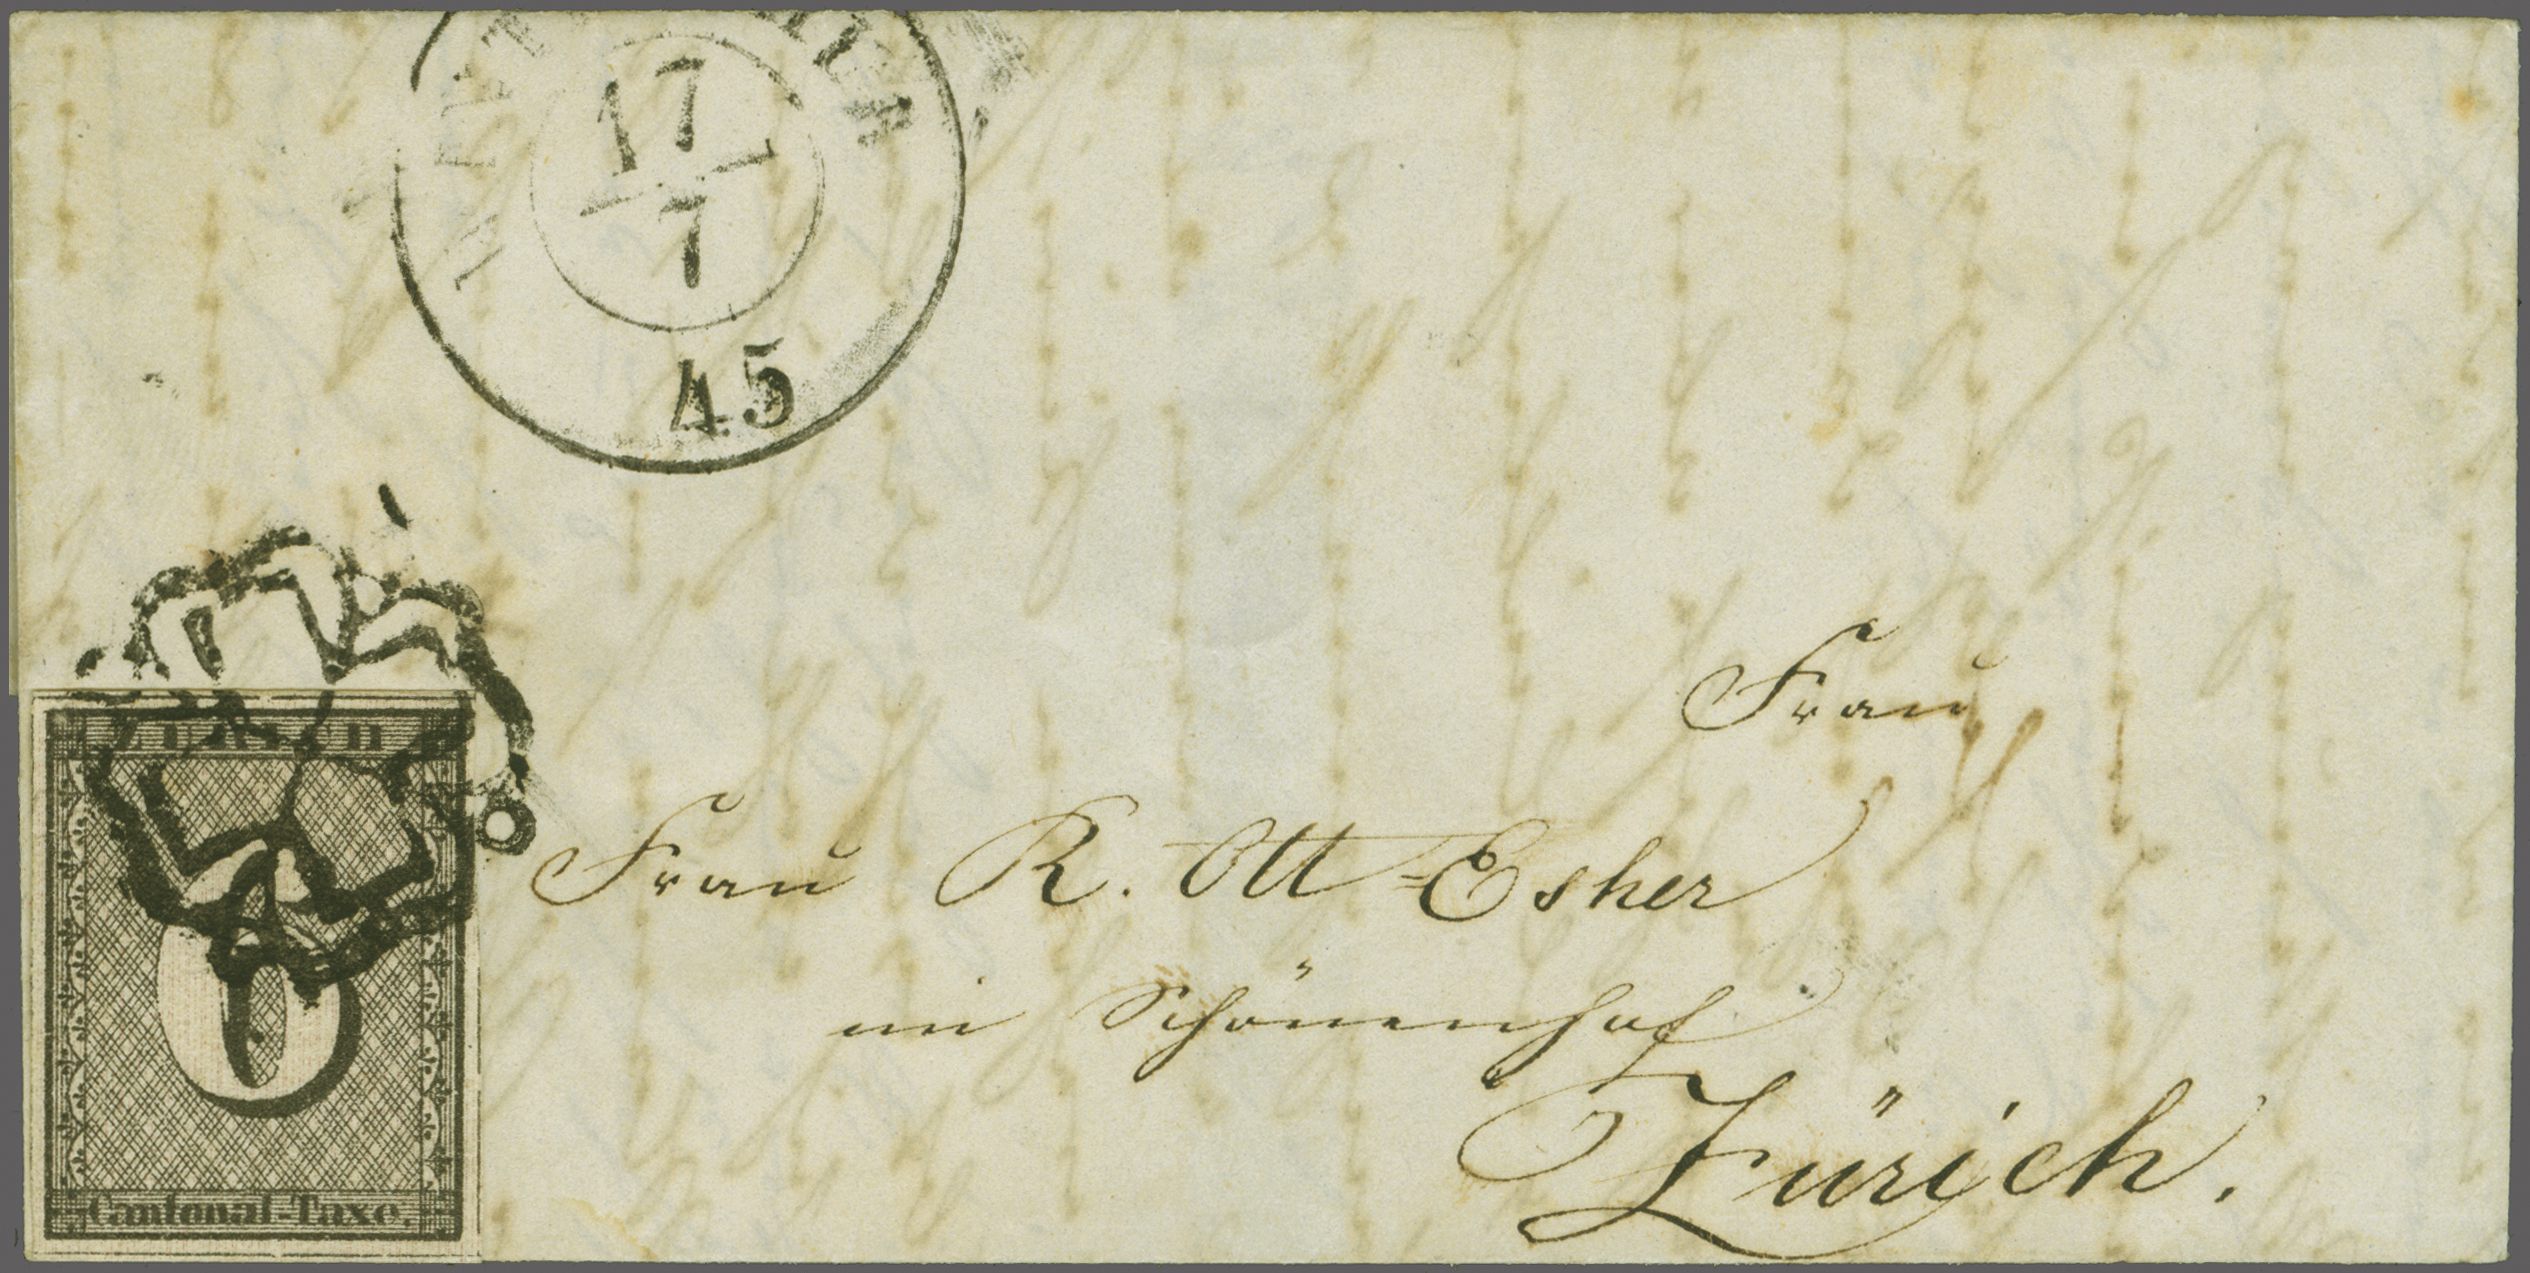 17
7
45
ZÜRICH
6
Cantonal-Taxe.
Frau
Frau R. Ott-Esher
im Schönenhof
Zürich.